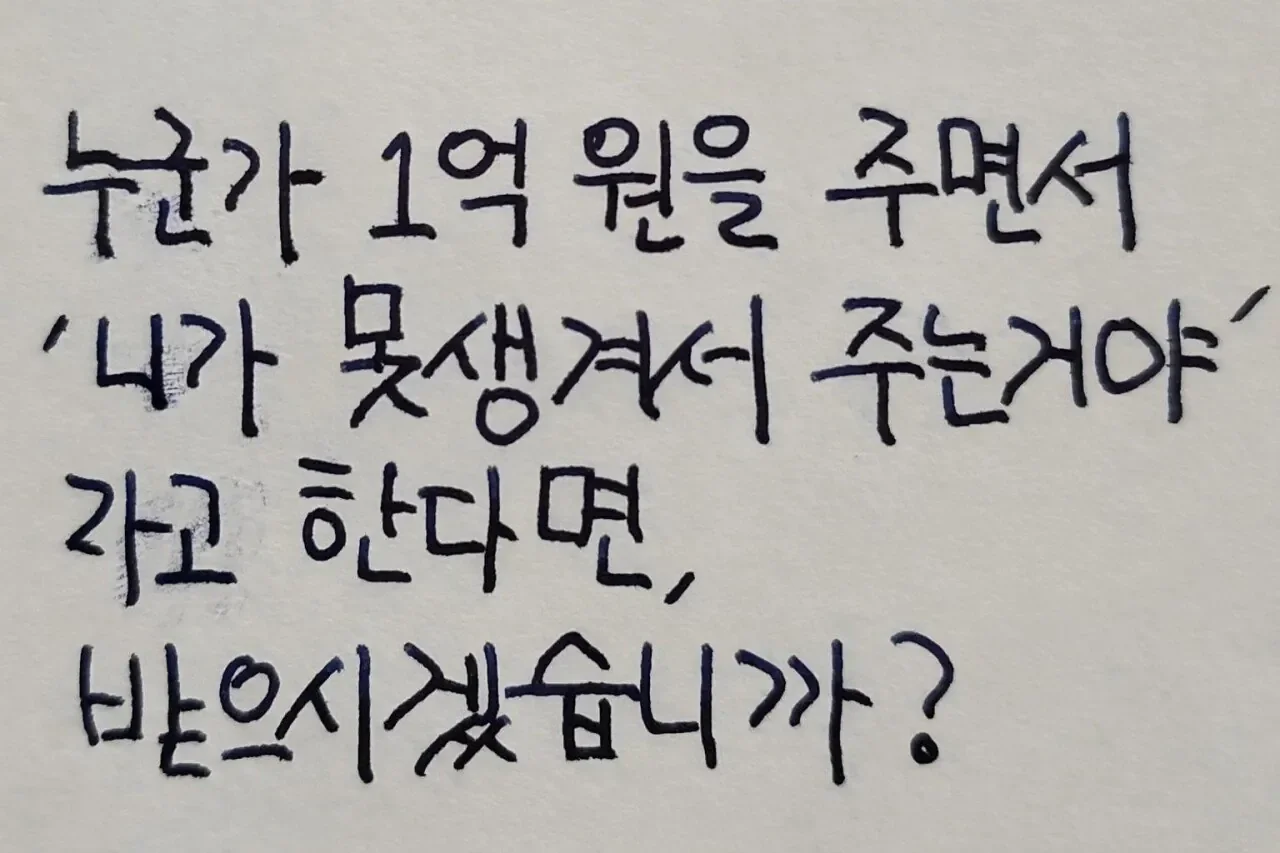 누군가 1억 원을 주면서
'니가 못생겨서 주는거야'
라고 한다면,
받으시겠습니까?